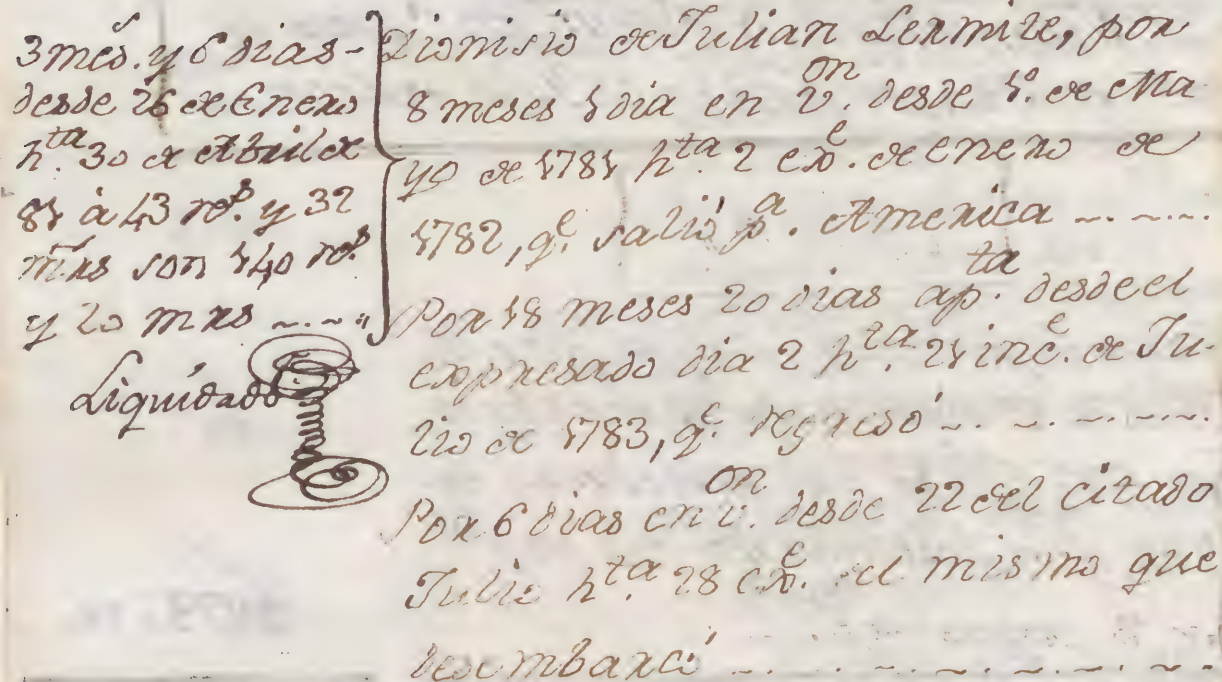 3 mes. y 6 dias-
desde 26 de Enero
hta. 30 de Abril de
81 à 43 rs. y 32
mrs son 140 rs
y 20 mrs
Liquidado
Dionisio de Julian Lermite, por
8 meses 1 dia en von. desde 1º. de Ma
yo de 1781 hta. 2 exe. de enero de
1782, qe. salió pa. America
Por 18 meses 20 dias apta. desde el
expresado dia 2 hta. 21 ince. de Ju-
lio de 1783, qe. regresó
Por 6 dias en von. desde 22 del citado
Julio hta. 28 exe. del mismo que
desembarcó